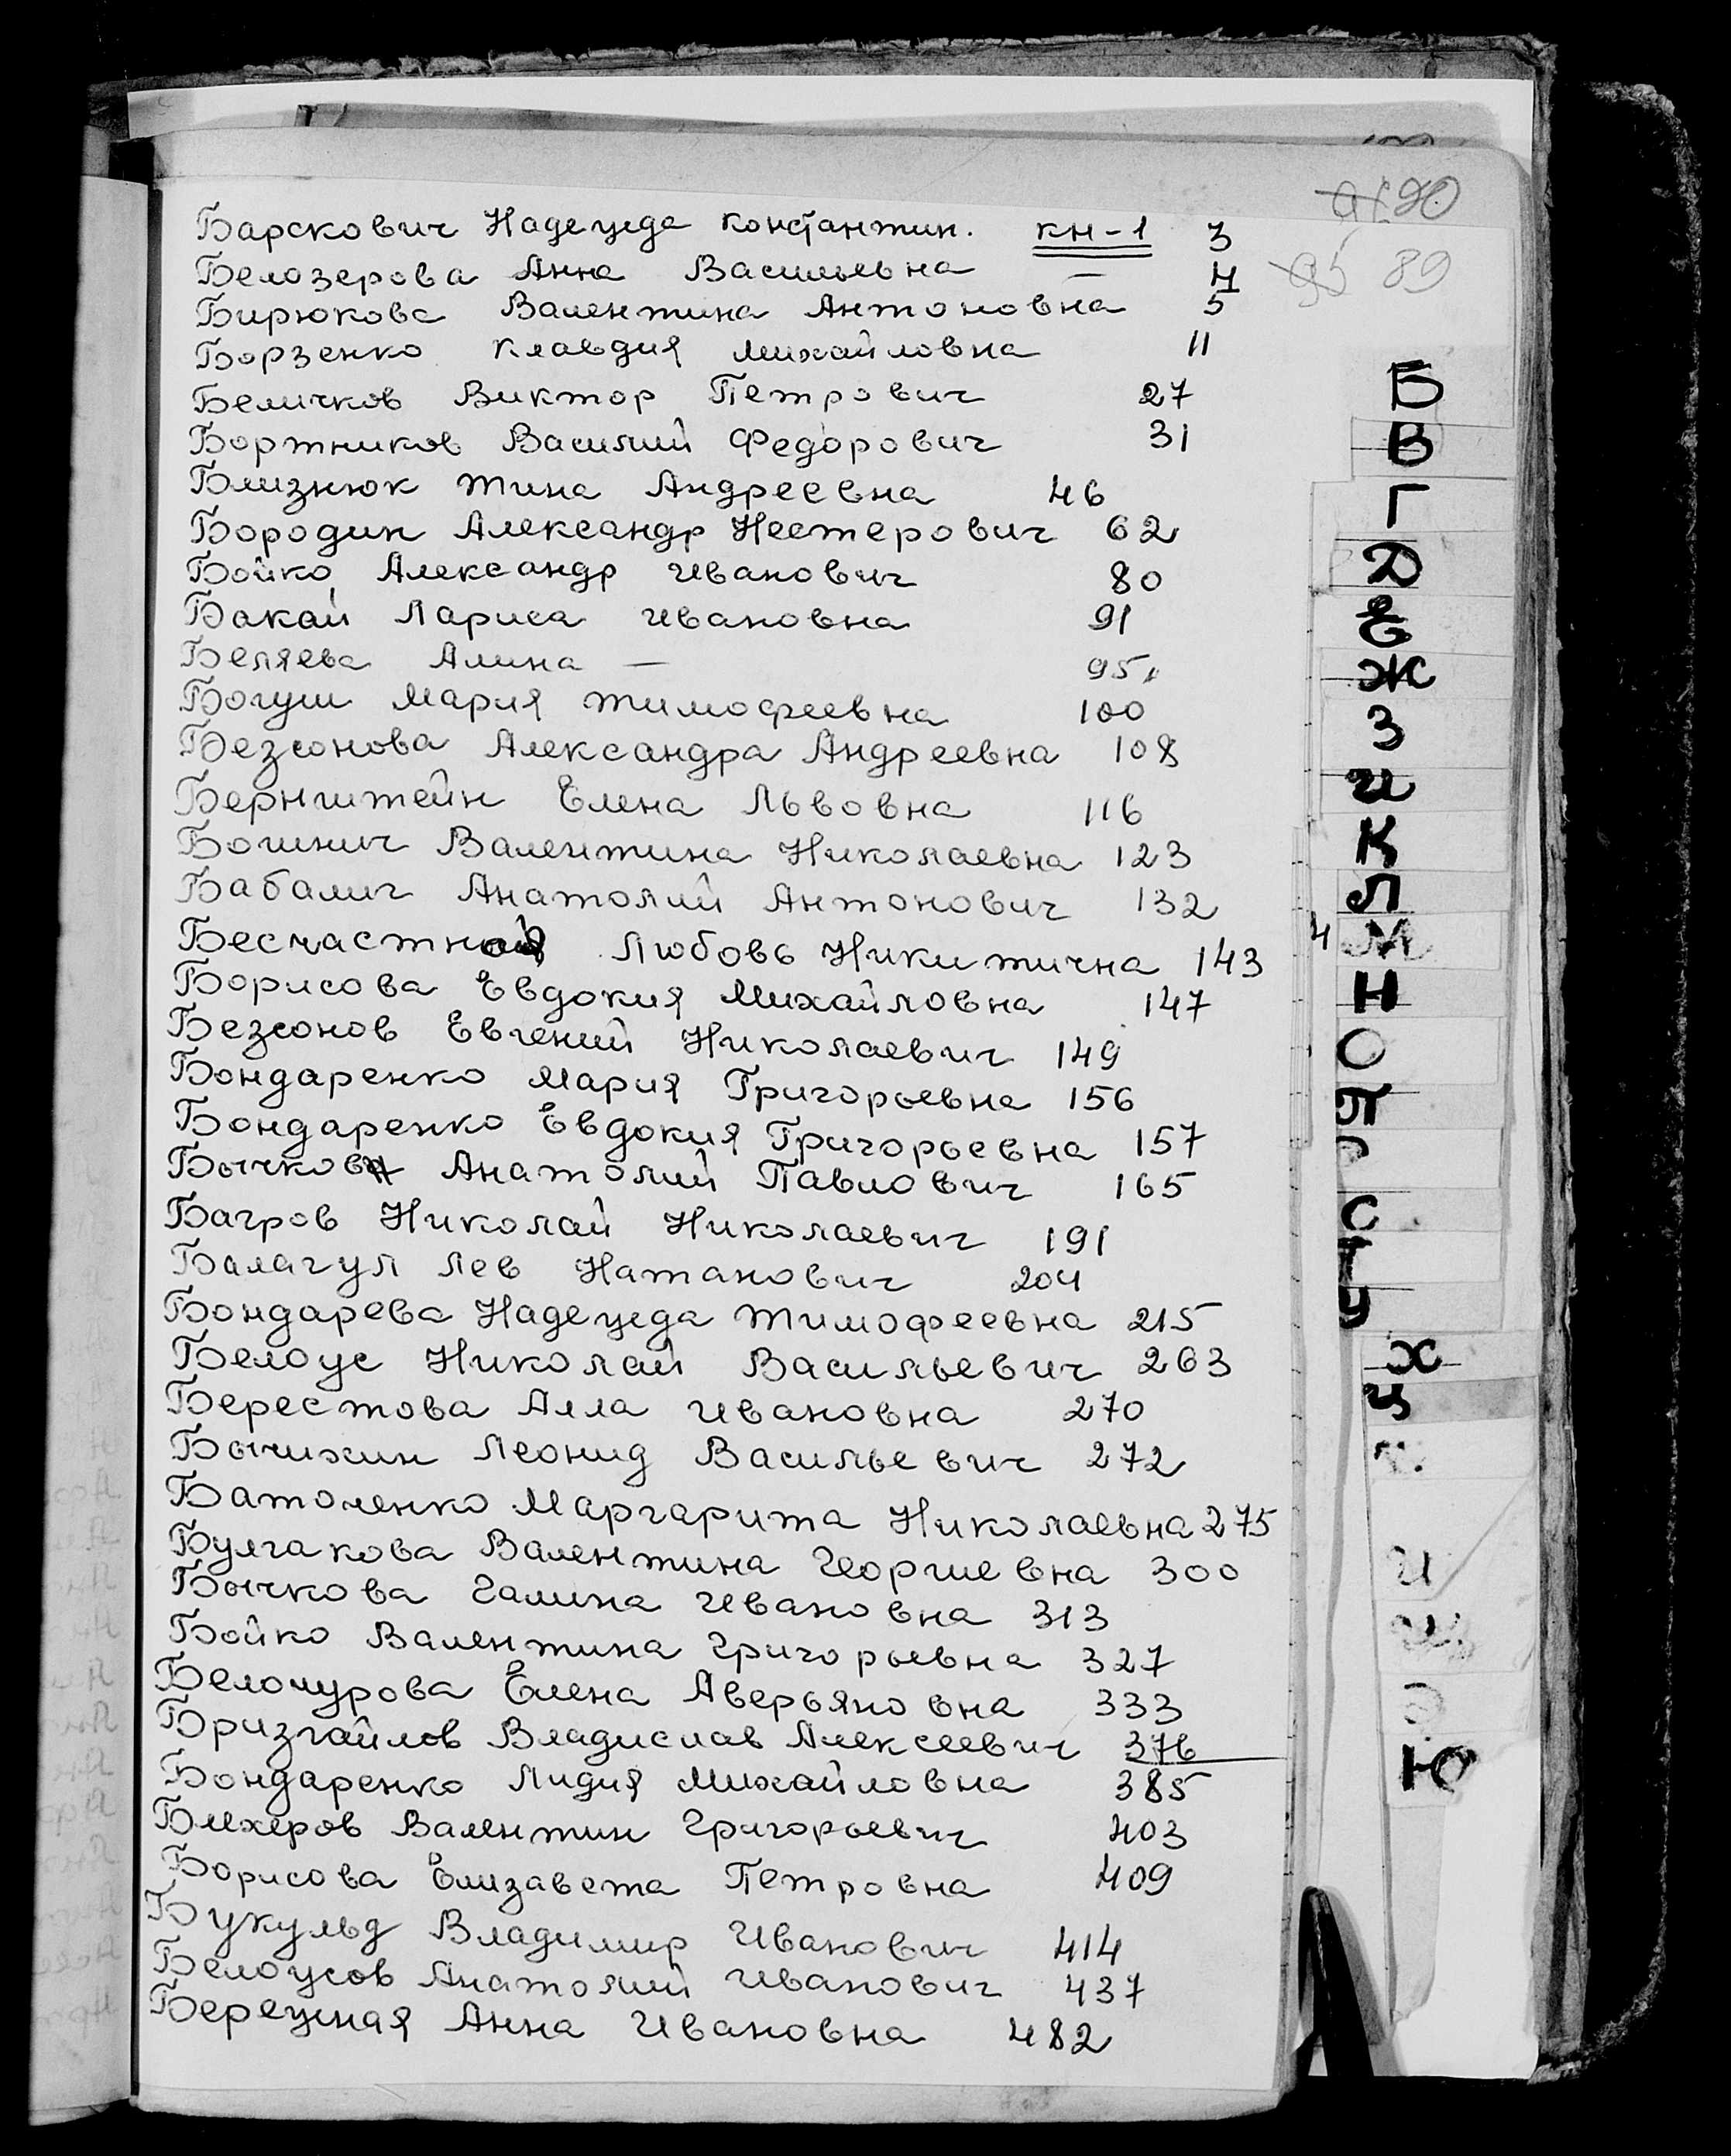 90
89
Барскович Надежда Константин. кн-1 3
Белозерова Анна Васильевна — 4
Бирюкова Валентина Антоновна 5
Борзенко Клавдия Михайловна 11
Беличков Виктор Петрович 27
Бортников Василий Федорович 31
Близнюк Тина Андреевна 46
Бородин Александр Нестерович 62
Бойко Александр Иванович 80
Бакай Лариса Ивановна 91
Беляева Алина — 95
Богуш Мария Тимофеевна 100
Безсонова Александра Андреевна 108
Бернштейн Елена Львовна 116
Валентина Николаевна 123
Бабалич Анатолий Антонович 132
Бесчастная Любовь Никитична 143
Борисова Евдокия Михайловна 147
Безсонов Евгений Николаевич 149
Бондаренко Мария Григорьевна 156
Бондаренко Евдокия Григорьевна 157
Бычков Анатолий Павлович 165
Багров Николай Николаевич 191
Балагул Лев Натанович 204
Бондарева Надежда Тимофеевна 215
Белоус Николай Васильевич 263
Берестова Алла Ивановна 270
Бычихин Леонид Васильевич 272
Батоленко Маргарита Николаевна 275
Булгакова Валентина Георгиевна 300
Бычкова Галина Ивановна 313
Бойко Валентина Григорьевна 327
Белочурова Елена Аверьяновна 333
Бризгайлов Владислав Алексеевич 376
Бондаренко Лидия Михайловна 385
Блехеров Валентин Григорьевич 403
Борисова Елизавета Петровна 409
Букульд Владимир Иванович 414
Белоусов Анатолий Иванович 437
Бережная Анна Ивановна 482
Б
В
Г
Д
Е
Ж
З
И
К
Л
М
Н
О
П
Р
С
Т
У
Х
Ц
Ю